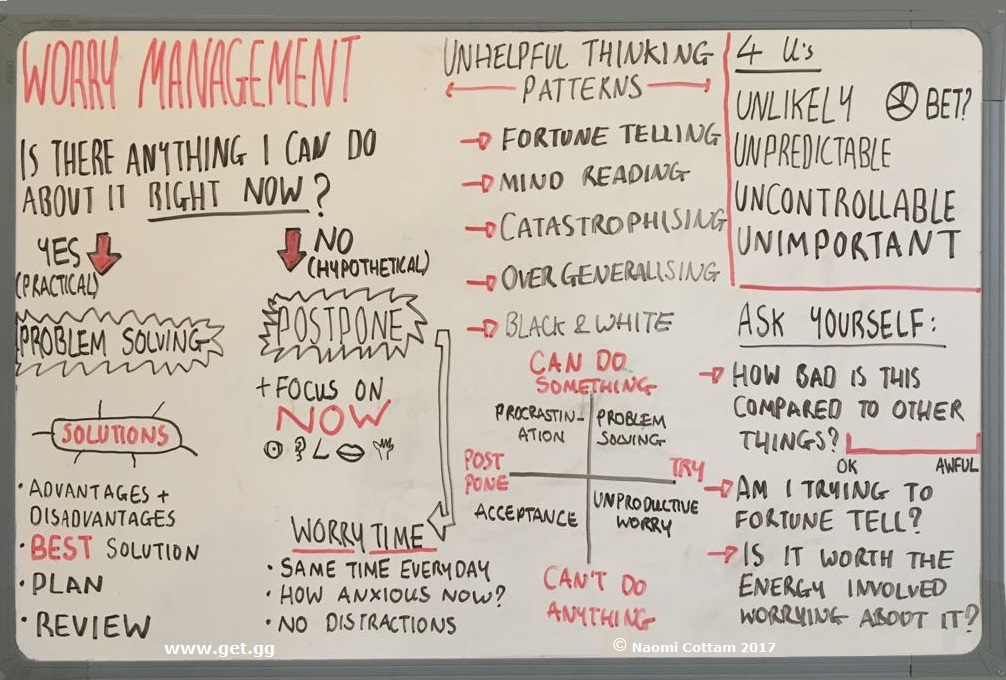 WORRY MANAGEMENT
IS THERE ANYTHING I CAN DO
ABOUT IT RIGHT NOW?
YES
(PRACTICAL)
PROBLEM SOLVING
SOLUTIONS
· ADVANTAGES +
DISADVANTAGES
· BEST SOLUTION
· PLAN
· REVIEW
NO
(HYPOTHETICAL)
POSTPONE
+ FOCUS ON
NOW
WORRY TIME
· SAME TIME EVERYDAY
· HOW ANXIOUS NOW?
· NO DISTRACTIONS
UNHELPFUL THINKING
PATTERNS
→ FORTUNE TELLING
→ MIND READING
→ CATASTROPHISING
→ OVERGENERALISING
→ BLACK & WHITE
CAN DO
SOMETHING
PROCRASTIN-
ATION
PROBLEM
SOLVING
POST
PONE
TRY
ACCEPTANCE
UNPRODUCTIVE
WORRY
CAN'T DO
ANYTHING
4 U's
UNLIKELY BET?
UNPREDICTABLE
UNCONTROLLABLE
UNIMPORTANT
ASK YOURSELF:
→ HOW BAD IS THIS
COMPARED TO OTHER
THINGS?
OK AWFUL
→ AM I TRYING TO
FORTUNE TELL?
→ IS IT WORTH THE
ENERGY INVOLVED
WORRYING ABOUT IT?
www.get.gg
© Naomi Cottam 2017